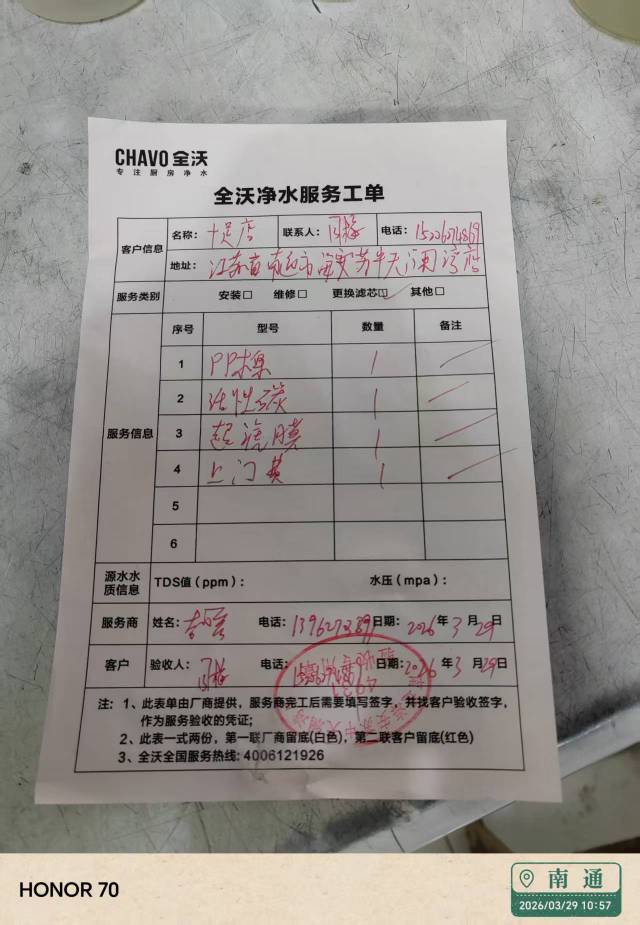 CHAVO 全沃
专注厨房净水
全沃净水服务工单
客户信息
名称: 十足店 联系人: 电话:
地址: 江苏省南通市海安苏中天河湾店
服务类别 安装□ 维修□ 更换滤芯☑ 其他□
服务信息
序号 型号 数量 备注
1 PP棉 1
2 活性碳 1
3 超滤膜 1
4 上门费 1
5
6
源水水质信息 TDS值(ppm): 水压(mpa):
服务商 姓名: 电话: 日期: 2026年3月29日
客户 验收人: 电话: 日期: 2026年3月29日
注: 1、此表单由厂商提供，服务商完工后需要填写签字，并找客户验收签字，
作为服务验收的凭证;
2、此表一式两份，第一联厂商留底(白色)，第二联客户留底(红色)
3、全沃全国服务热线: 4006121926
HONOR 70
南通
2026/03/29 10:57